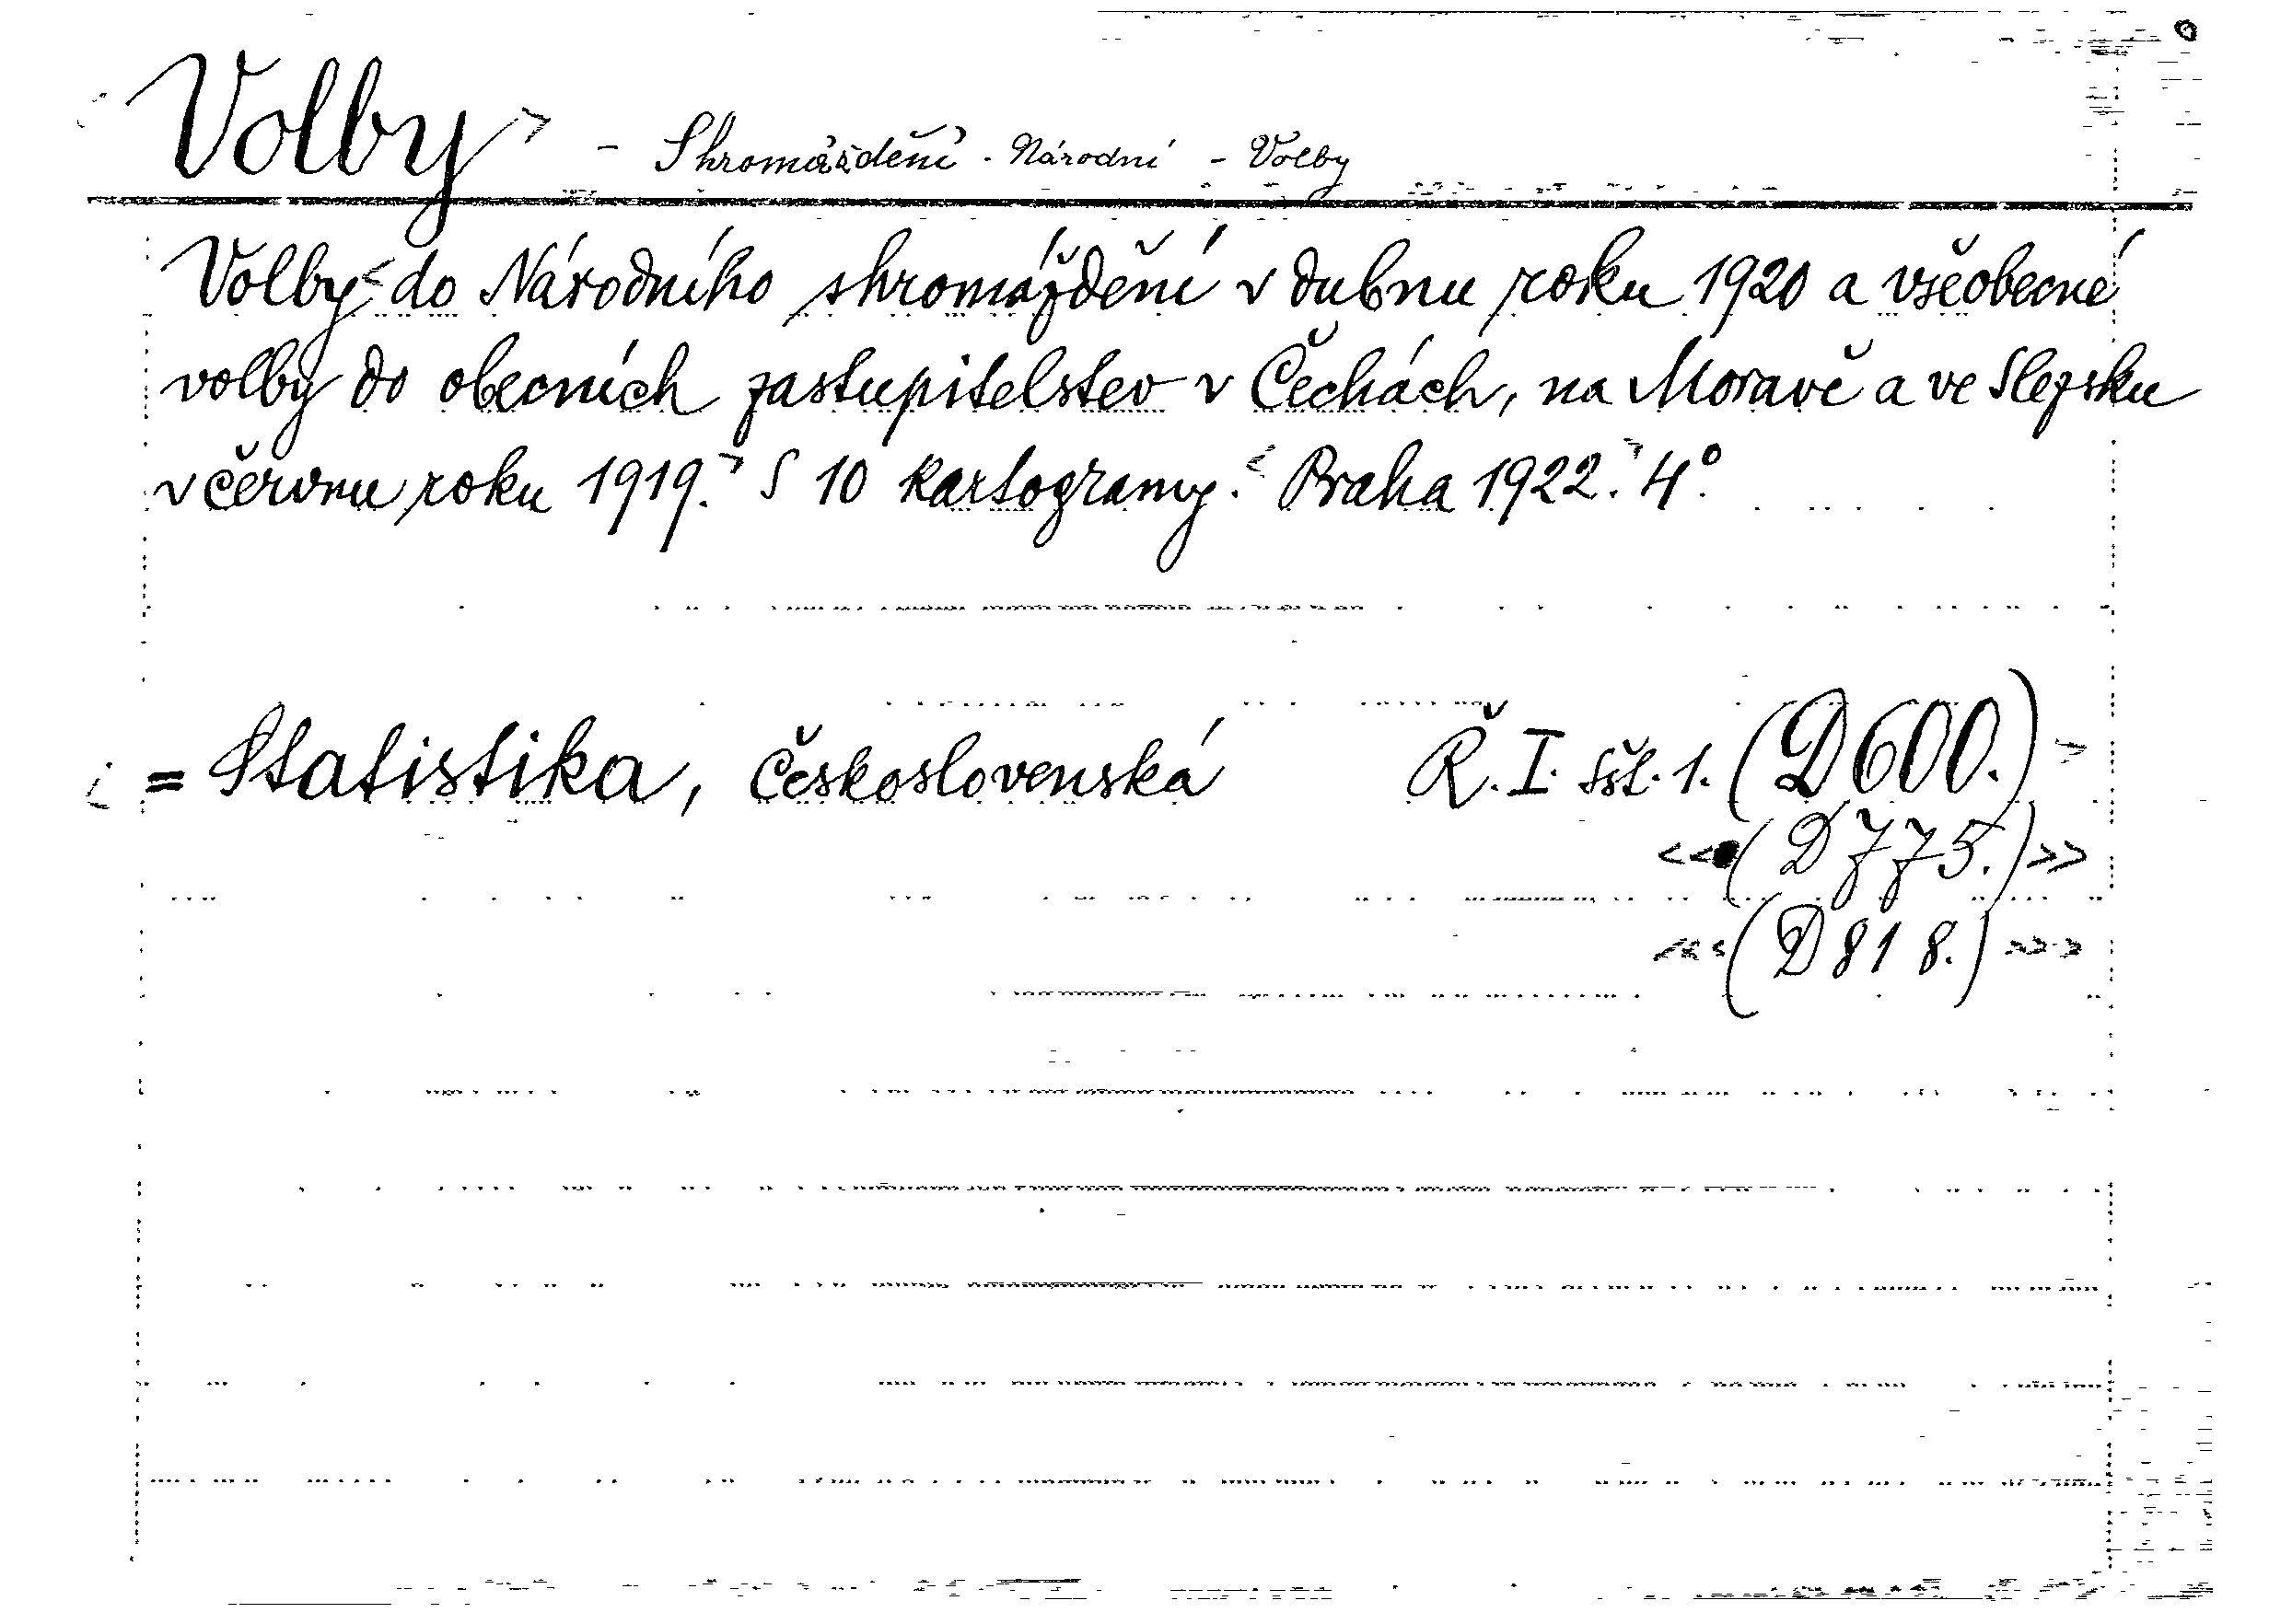 Volby - Shromáždění. Národní - Volby
Volby do Národního shromáždění v dubnu roku 1920 a všeobecné
volby do obecních zastupitelstev v Čechách, na Moravě a ve Slezsku
v červnu roku 1919. S 10 kartogramy. Praha 1922. 4°.
= Statistika, Československá Ř. I. sšt. 1. (D 600.)
<<(D 775.)>>
<<<(D 818.)>>>